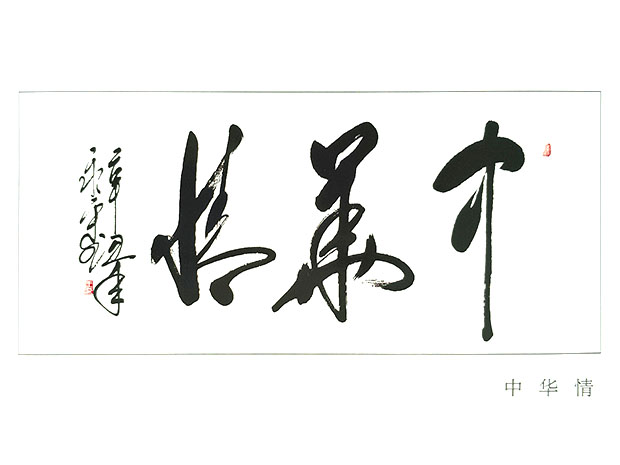 中華情
中华情